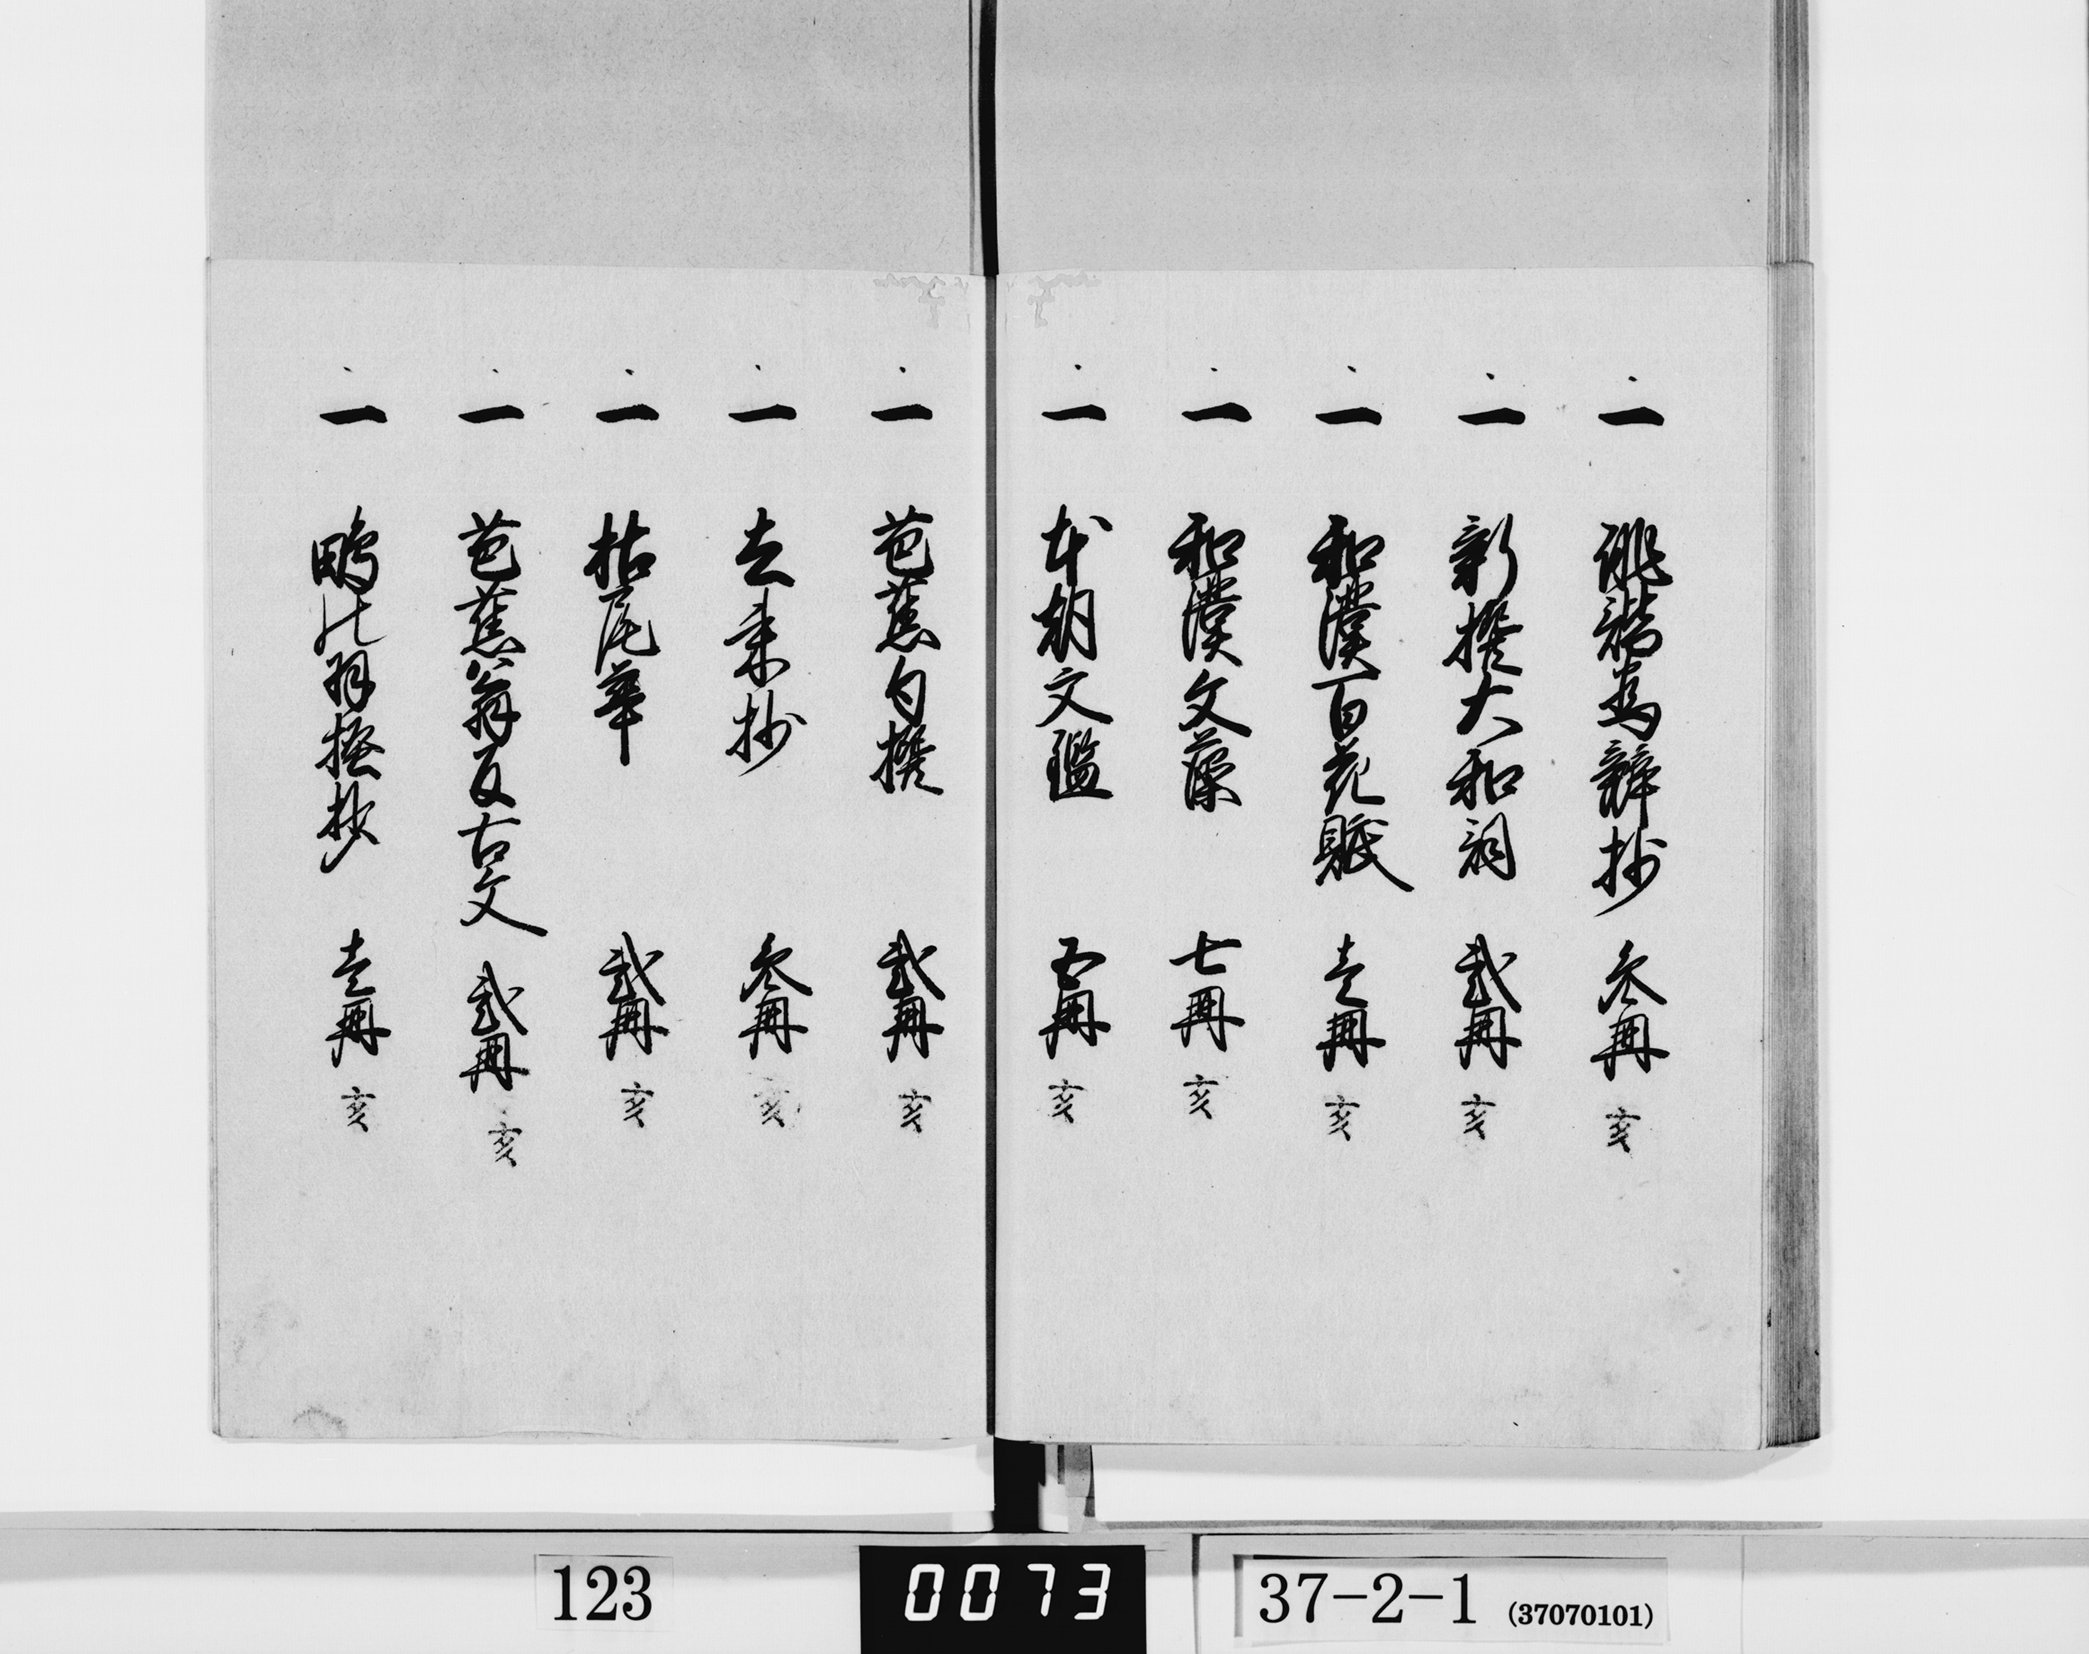 一 誹諧為辨抄 参冊 亥
一 新撰大和詞 弐冊 亥
一 和漢百花賦 壱冊 亥
一 和漢文藻 七冊 亥
一 本朝文鑑 五冊 亥
一 芭蕉句撰 弐冊 亥
一 去来抄 参冊 亥
一 枯尾華 弐冊 亥
一 芭蕉翁反古文 弐冊 亥
一 鴫の羽掻抄 壱冊 亥
123
0073
37-2-1 (37070101)